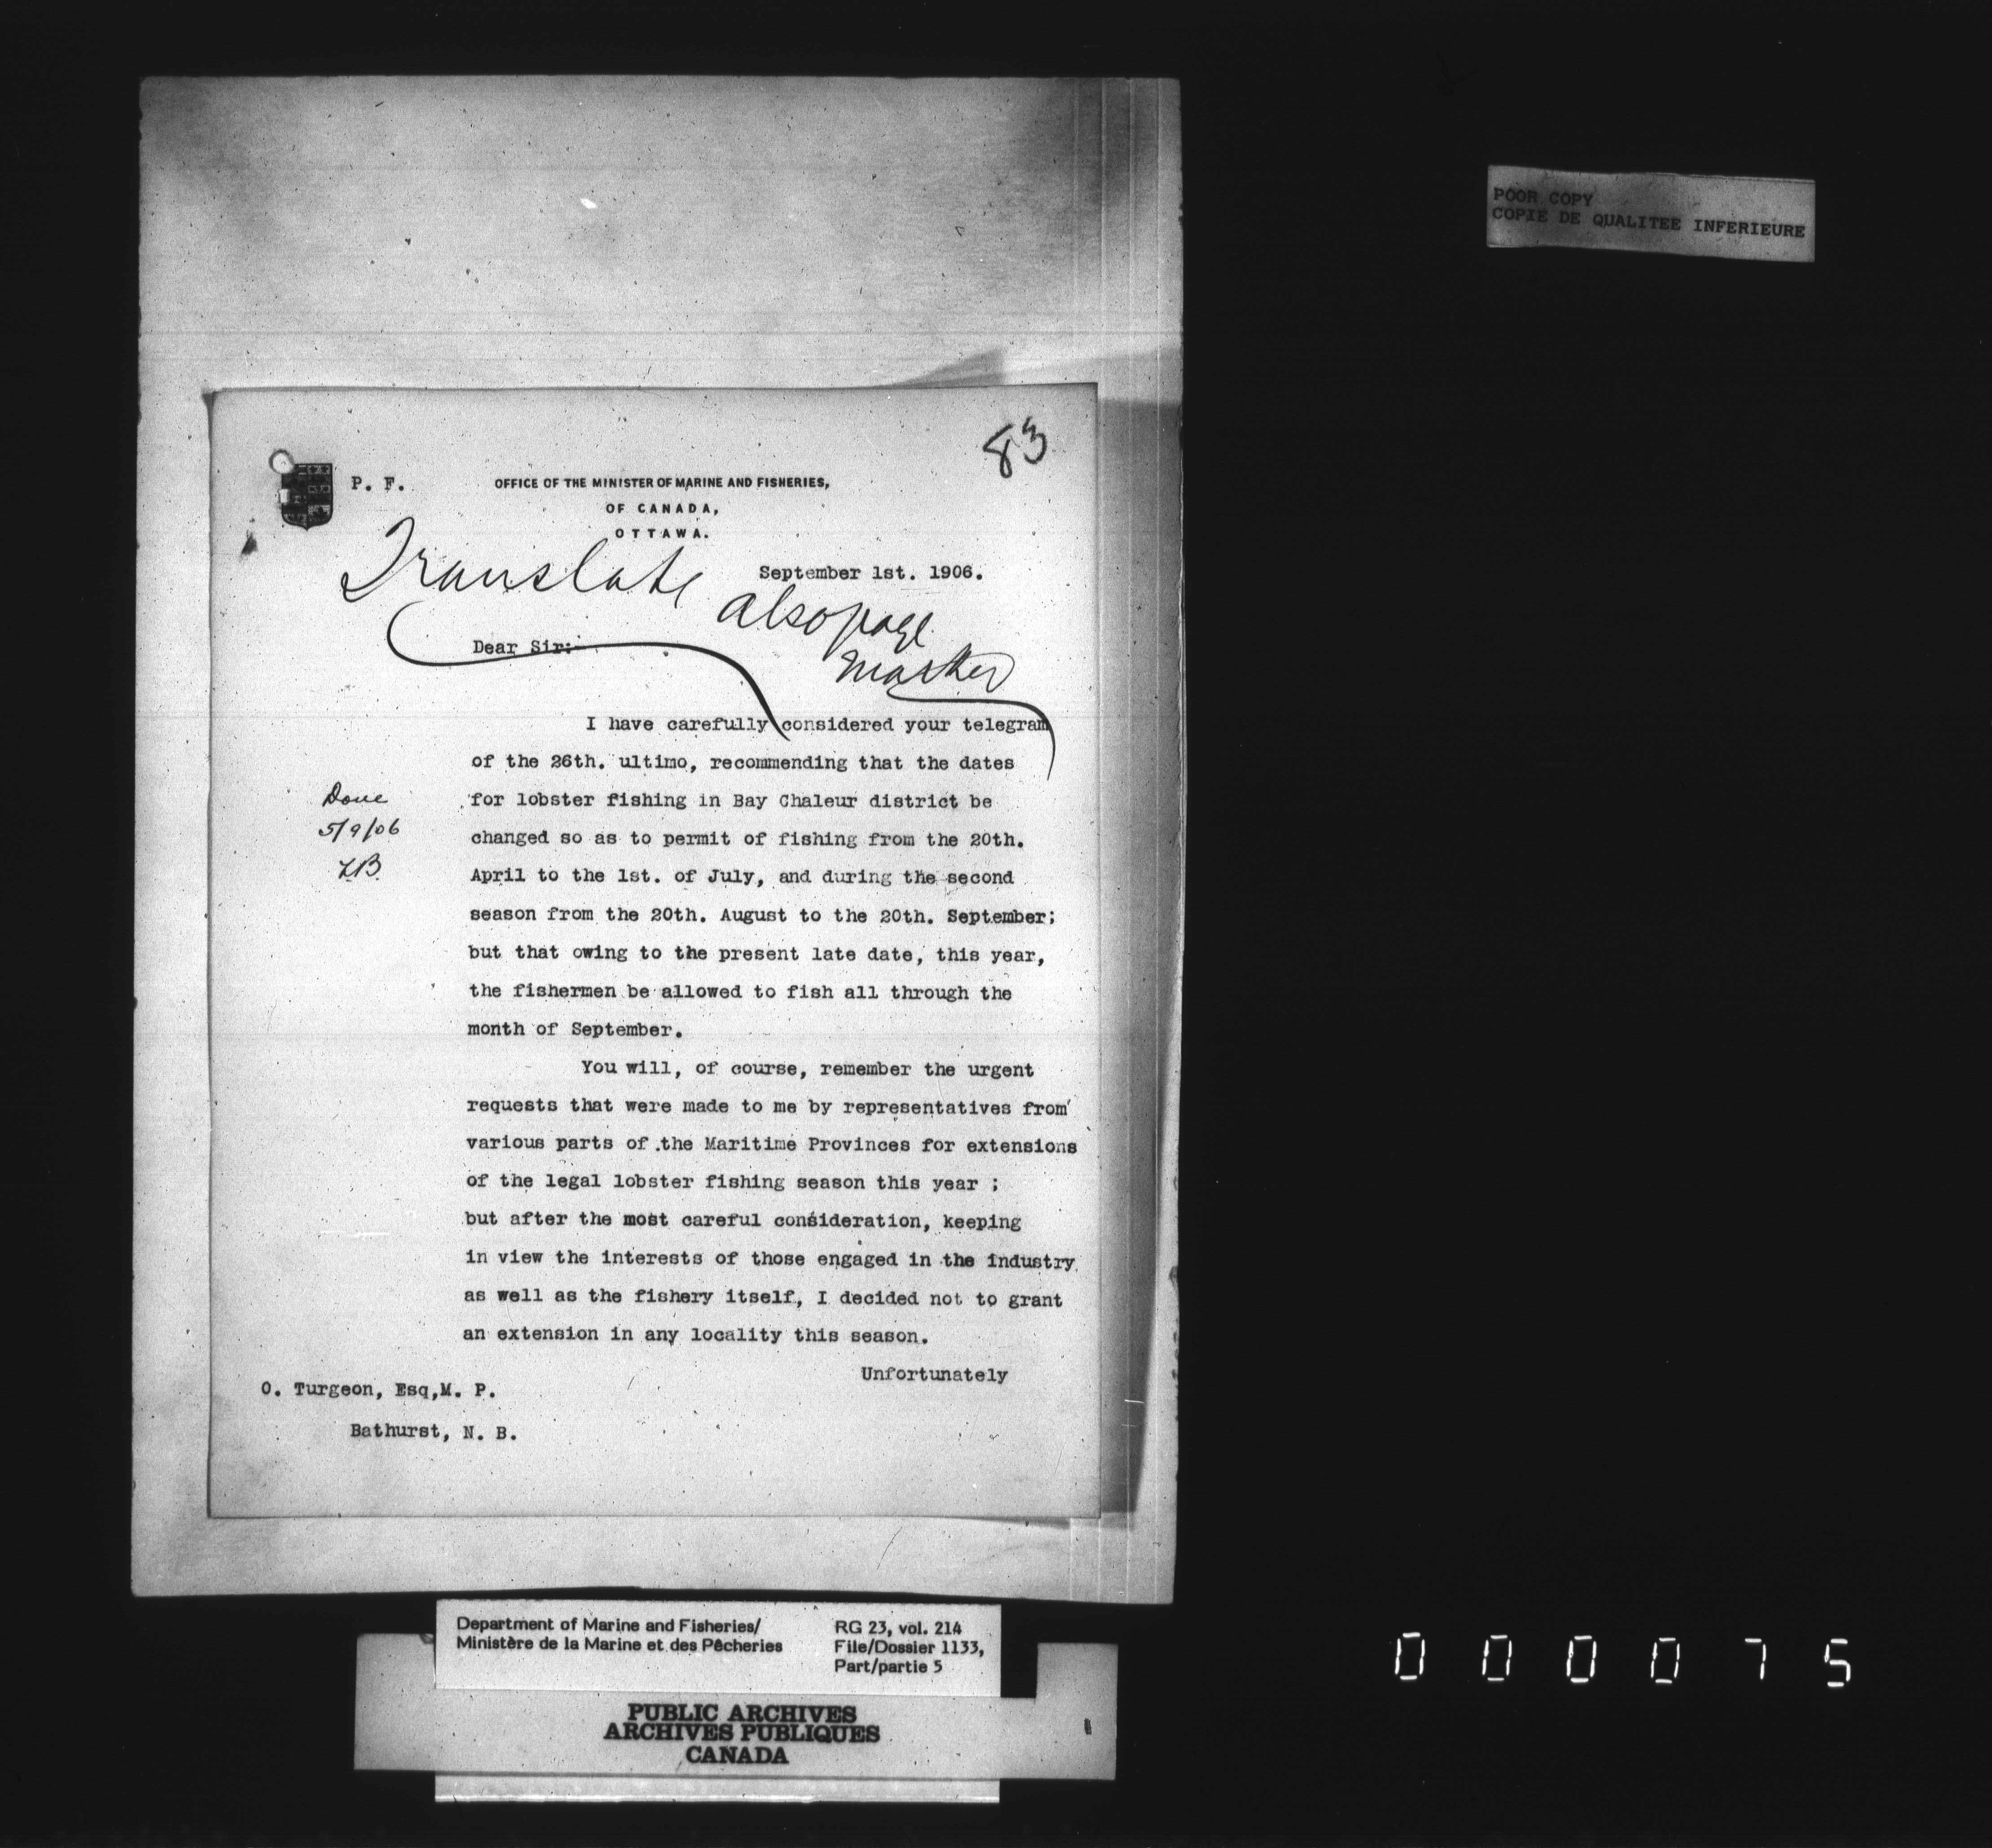 POOR COPY
COPIE DE QUALITEE INFERIEURE
83
P. F.
OFFICE OF THE MINISTER OF MARINE AND FISHERIES,
OF CANADA,
OTTAWA.
Translate
September 1st. 1906.
Also page
Dear Sir:-
I have carefully considered your telegram
of the 26th. ultimo, recommending that the dates
for lobster fishing in Bay Chaleur district be
changed so as to permit of fishing from the 20th.
April to the 1st. of July, and during the second
season from the 20th. August to the 20th. September;
but that owing to the present late date, this year,
the fishermen be allowed to fish all through the
month of September.
Done
5/9/06
You will, of course, remember the urgent
requests that were made to me by representatives from
various parts of the Maritime Provinces for extensions
of the legal lobster fishing season this year ;
but after the most careful consideration, keeping
in view the interests of those engaged in the industry
as well as the fishery itself, I decided not to grant
an extension in any locality this season.
Unfortunately
O. Turgeon, Esq,M. P.
Bathurst, N. B.
Department of Marine and Fisheries/
Ministère de la Marine et des Pêcheries
RG 23, vol. 214
File/Dossier 1133,
Part/partie 5
PUBLIC ARCHIVES
ARCHIVES PUBLIQUES
CANADA
000075